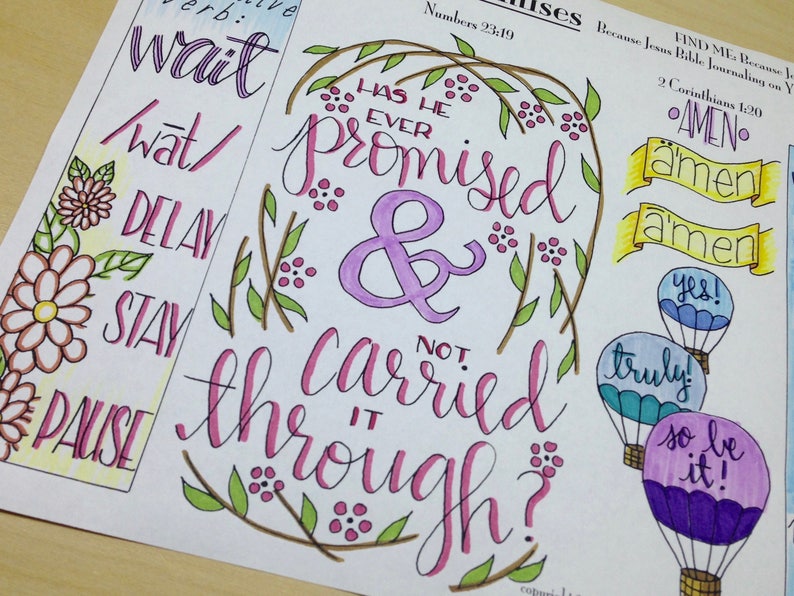 verb:
wait
/wāt/
DELAY
STAY
PAUSE
mises
Numbers 23:19
HAS HE
EVER
promised
&
NOT
carried
IT
through?
FIND ME: Because Je
Because Jesus Bible Journaling on Y
2 Corinthians 1:20
AMEN
ä'men
a'men
yes!
truly!
so be
it!